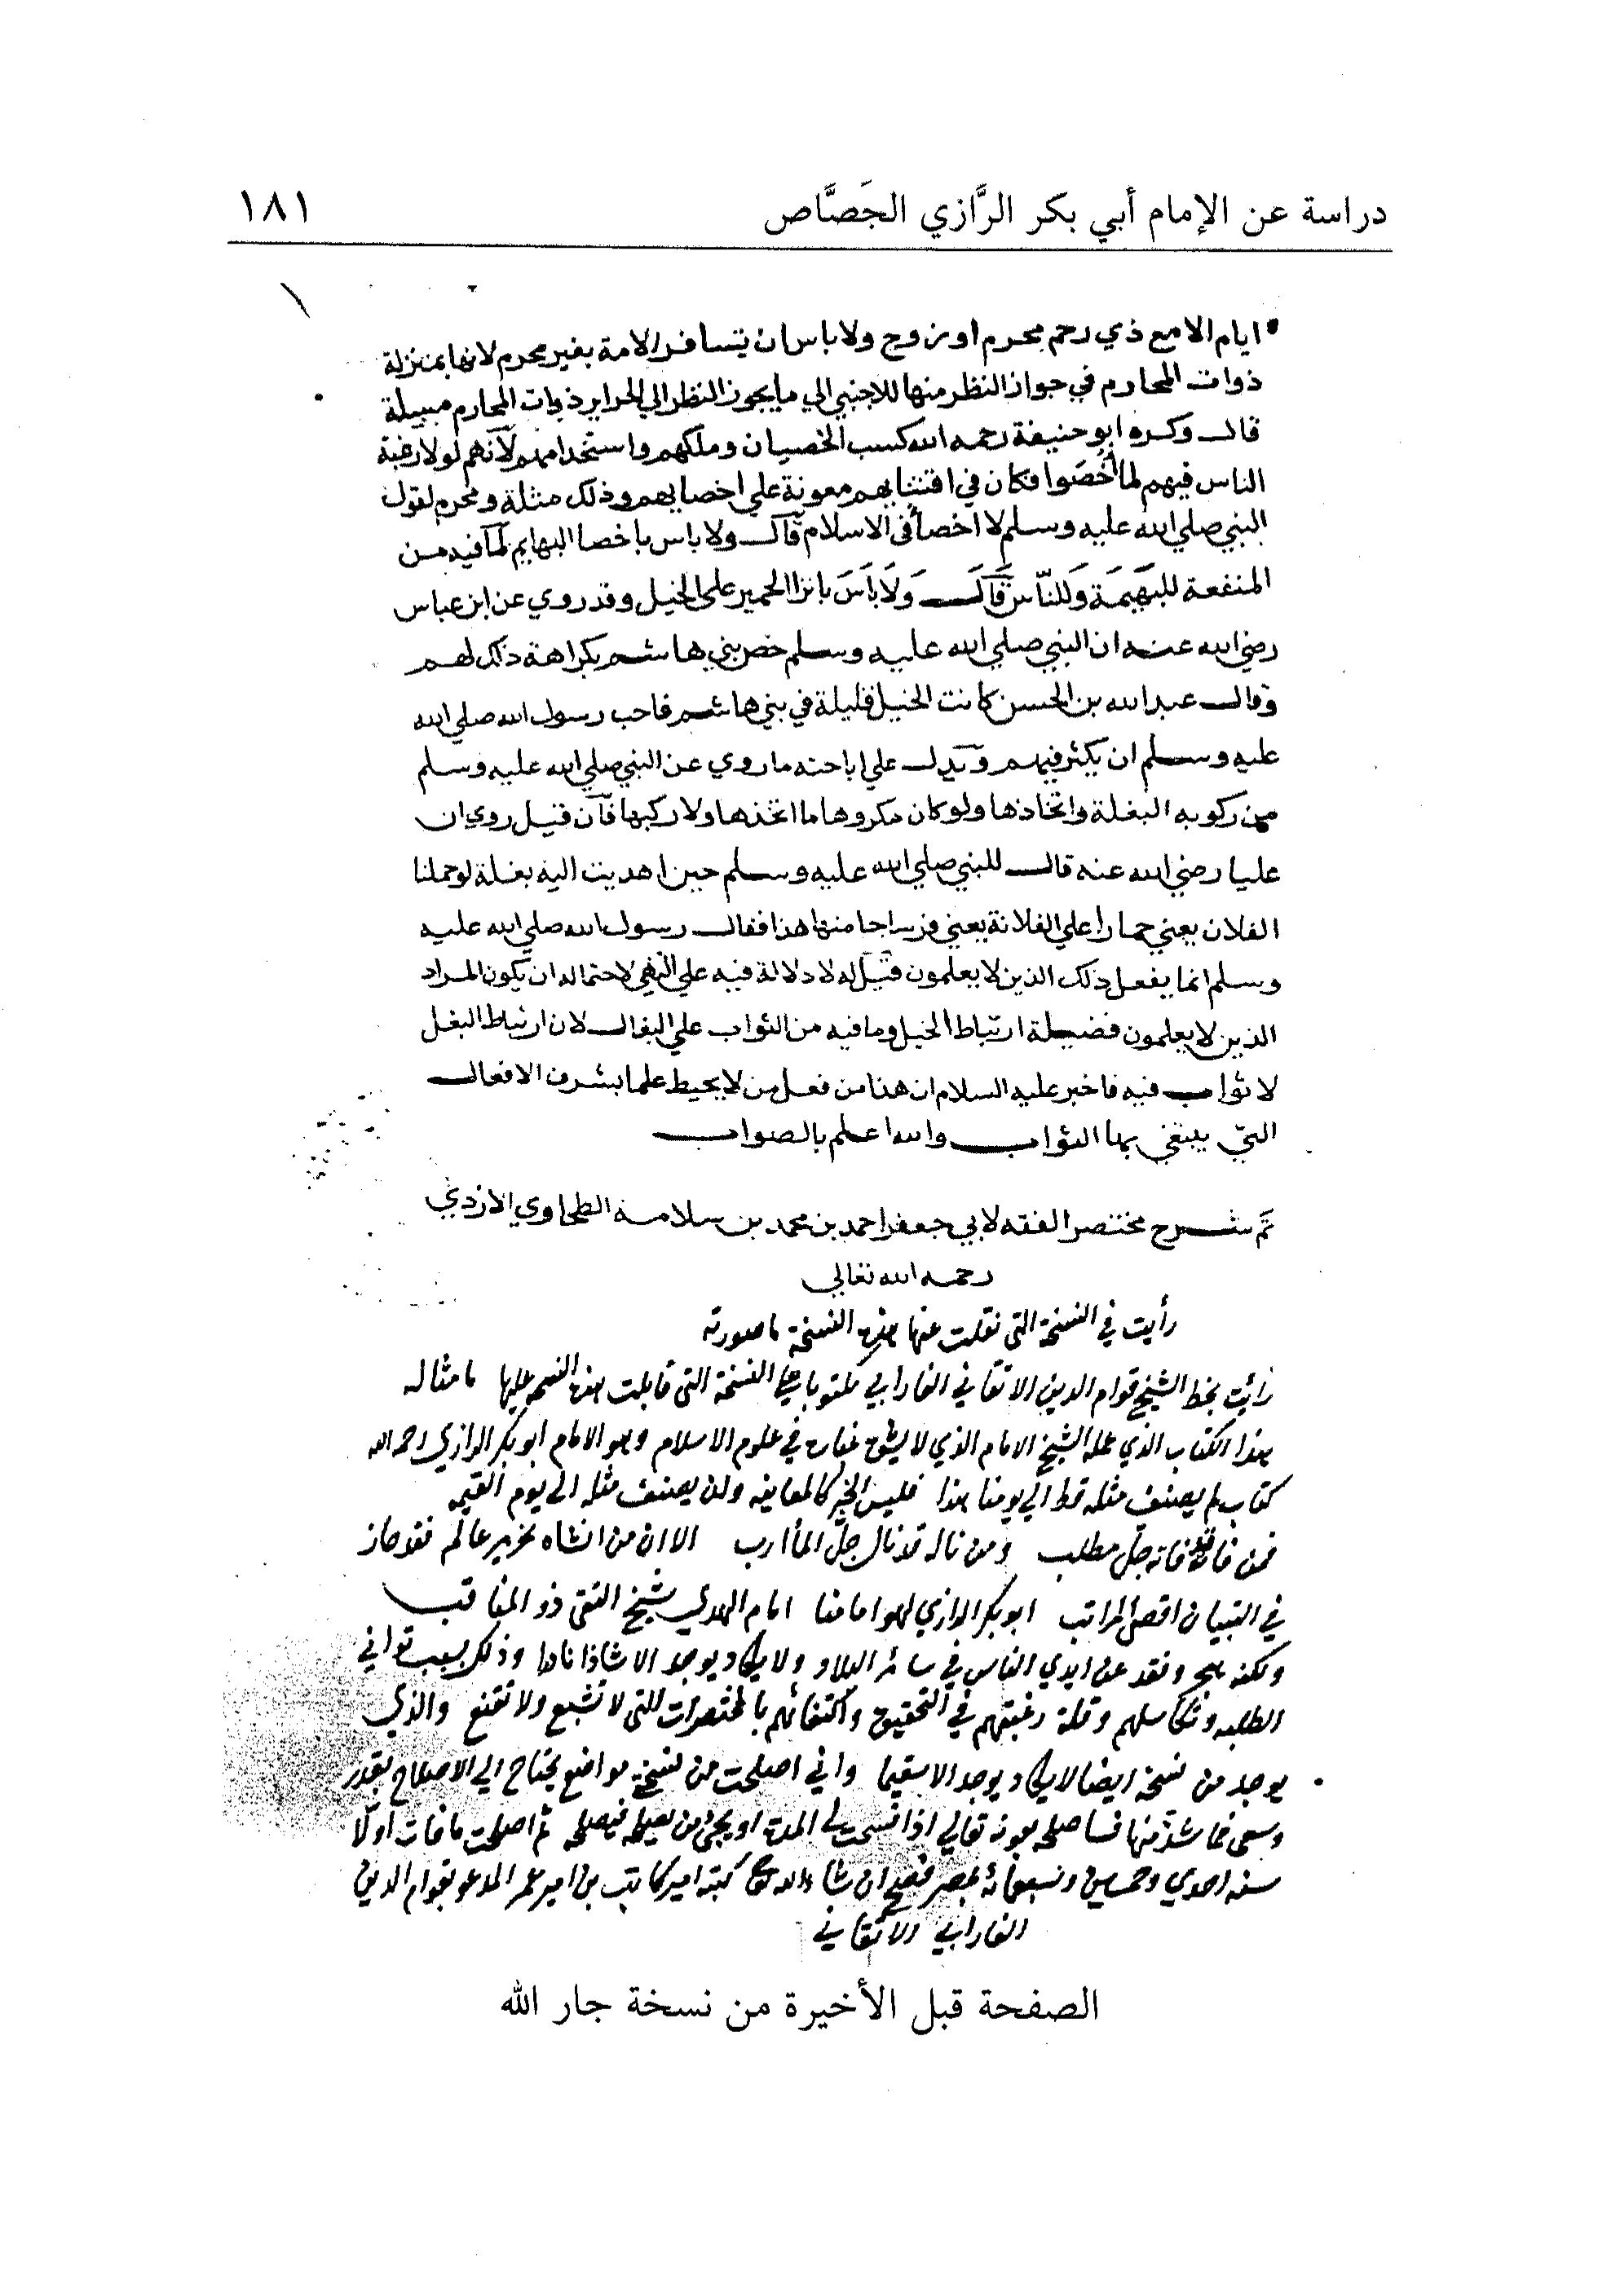 دراسة عن الإمام أبي بكر الرَّازي الجَصَّاص ١٨١
ايام الا مع ذي رحم محرم او زوج ولا باس ان تسافر الامة بغير محرم لانها بمنزلة
ذوات المحارم في جواز النظر منها للاجنبي الي ما يجوز النظر الي الحراير ذوات المحارم مبيلة
قال وكره ابو حنيفة رحمه الله كسب الخصيان وملكهم واستخدامهم لأنهم لولا رغبة
الناس فيهم لما أخصَوا فكان في اقتنايهم معونة علي اخصايهم وذلك مثلة ومحرم لقول
النبي صلي الله عليه وسلم لا اخصأ في الاسلام قال ولا باس باخصا البهايم لما فيه من
المنفعة للبَهيمَة وَللنّاس قَالَ وَلَا بَاسَ بانزا الحمير على الخيل وقد روي عن ابن عباس
رضي الله عنه ان النبي صلي الله عليه وسلم خص بني هاشم بكراهة ذلك لهم
وقال عبد الله بن الحسن كانت الخيل قليلة في بني هاشم فاحب رسول الله صلي الله
عليه وسلم ان يكثر فيهم وتدل علي اباحته ما روي عن النبي صلي الله عليه وسلم
من ركوبه البغلة واتخاذها ولو كان مكروها ما اتخذها ولا ركبها فان قيل روي ان
عليا رضي الله عنه قال للنبي صلي الله عليه وسلم حين اهديت اليه بغلة لو حملنا
الفلان يعني حمارا علي الفلانة يعني فرسا جا منها هذا فقال رسول الله صلي الله عليه
وسلم انما يفعل ذلك الذين لا يعلمون قيل له لا دلالة فيه علي النهي لاحتماله ان يكون المراد
الذين لا يعلمون فضيلة ارتباط الخيل وما فيه من الثواب علي البغال لان ارتباط البغل
لا ثواب فيه فاخبر عليه السلام ان هذا من فعل من لا يحيط علما بشرف الافعال
التي يبتغي بها الثواب والله اعلم بالصواب
تم شرح مختصر الفقه لابي جعفر احمد بن محمد بن سلامة الطحاوي الازدي
رحمه الله تعالي
رأيت في النسخة التي نقلت عنها هذه النسخة ما صورته
رأيت بخط الشيخ قوام الدين الاتقاني الفارابي مكتوبا علي النسخة التي قابلت هذه النسخة عليها ما مثاله
هذا الكتاب الذي عمله الشيخ الامام الذي لا يشق غباره في علوم الاسلام وهو الامام ابو بكر الرازي رحمه الله
كتاب لم يصنف مثله قط الي يومنا هذا فليس الخبر كالمعاينه ولن يصنف مثله الي يوم القيمه
فمن فاته قد فاته جل مطلب ومن ناله قد نال جلّ المأارب الا ان من انشاه نحرير عالم فقد حاز
في التبيان اقصى المراتب ابو بكر الرازي لهو امامنا امام الهدي شيخ التقى ذو المناقب
ولكنه هجر وفقد عن ايدي الناس في سائر البلاد ولا يكاد يوجد الا شاذا نادرا وذلك بسبب تواني
الطلبه وتكاسلهم وقلة رغبتهم في التحقيق واكتفائهم بالمختصرات التي لا تشبع ولا تقنع والذي
يوجد من نسخة ايضا لا يكاد يوجد الا سقيما واني اصلحت من نسخته مواضع يحتاج الي الاصلاح بقدر
وسعى فما شذ منها فساصلحه بعونه تعالي اذا فسحت لي المدة او يجئ من يصلحه فيصلحه ثم اصلحت ما فات اولا
سنه احدي وخمسين وسبعمائة بمصر فصح ان شاء الله كتبه امير كاتب بن امير عمر المدعو بقوام الدين
الفارابي الاتقاني
الصفحة قبل الأخيرة من نسخة جار الله